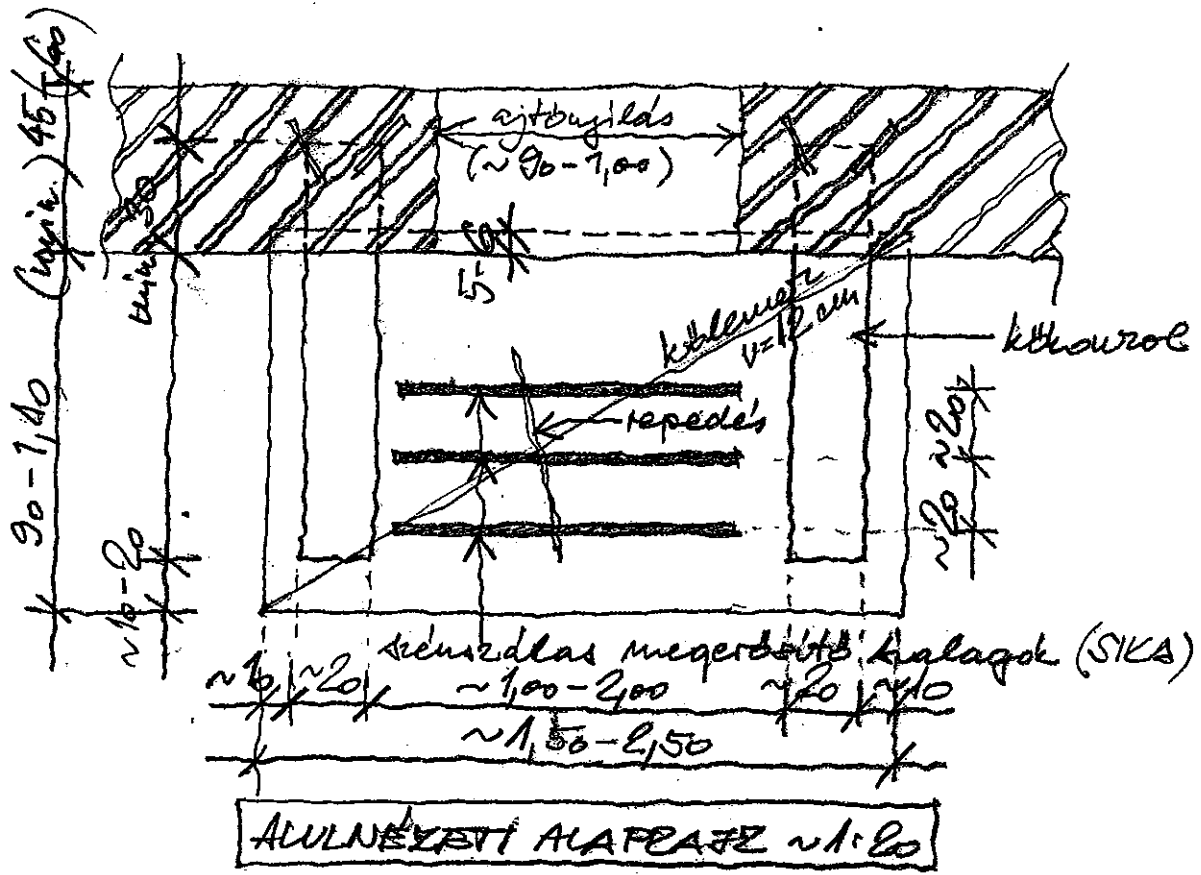 ajtónyílás
(~90-1,00)
(min.) 45 (60)
min. 30
5-6
kőlemez
v=12 cm
kőkonzol
repedés
90-1,10
~10-20
~20
~20
szénszálas megerősítő szalagok (SIKA)
~10 ~20 ~1,00-2,00 ~20 ~10
~1,50-2,50
ALULNÉZETI ALAPRAJZ ~1:20